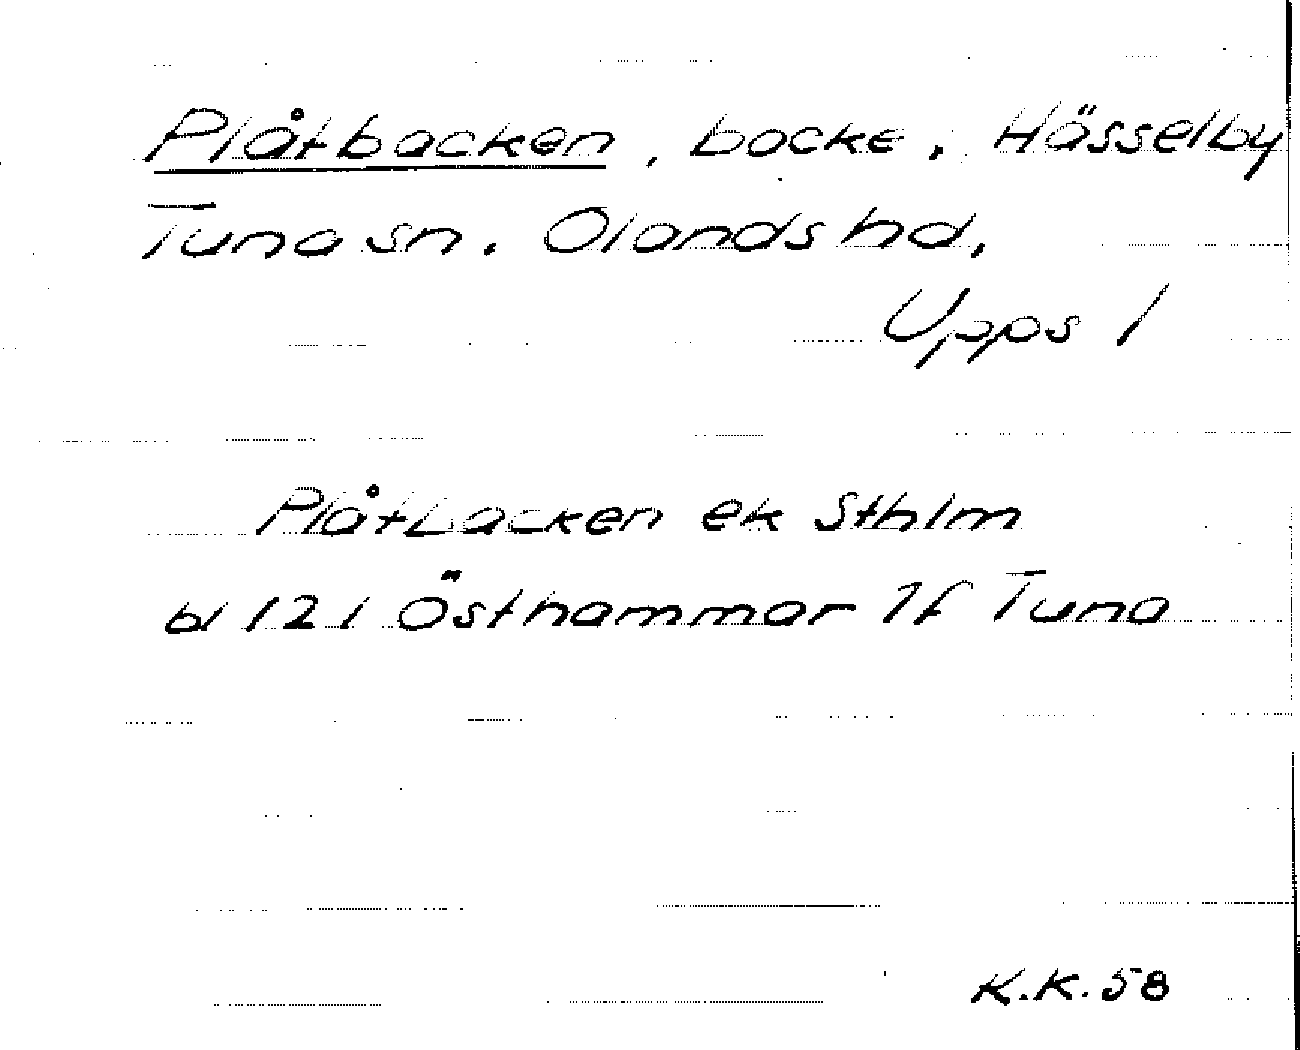 Plåtbacken, backe, Hässelby
Tuna sn. Olands hd,
Upps l
Plåtbacken ek Sthlm
bl 121 Östhammar 1f Tuna
K.K. 58